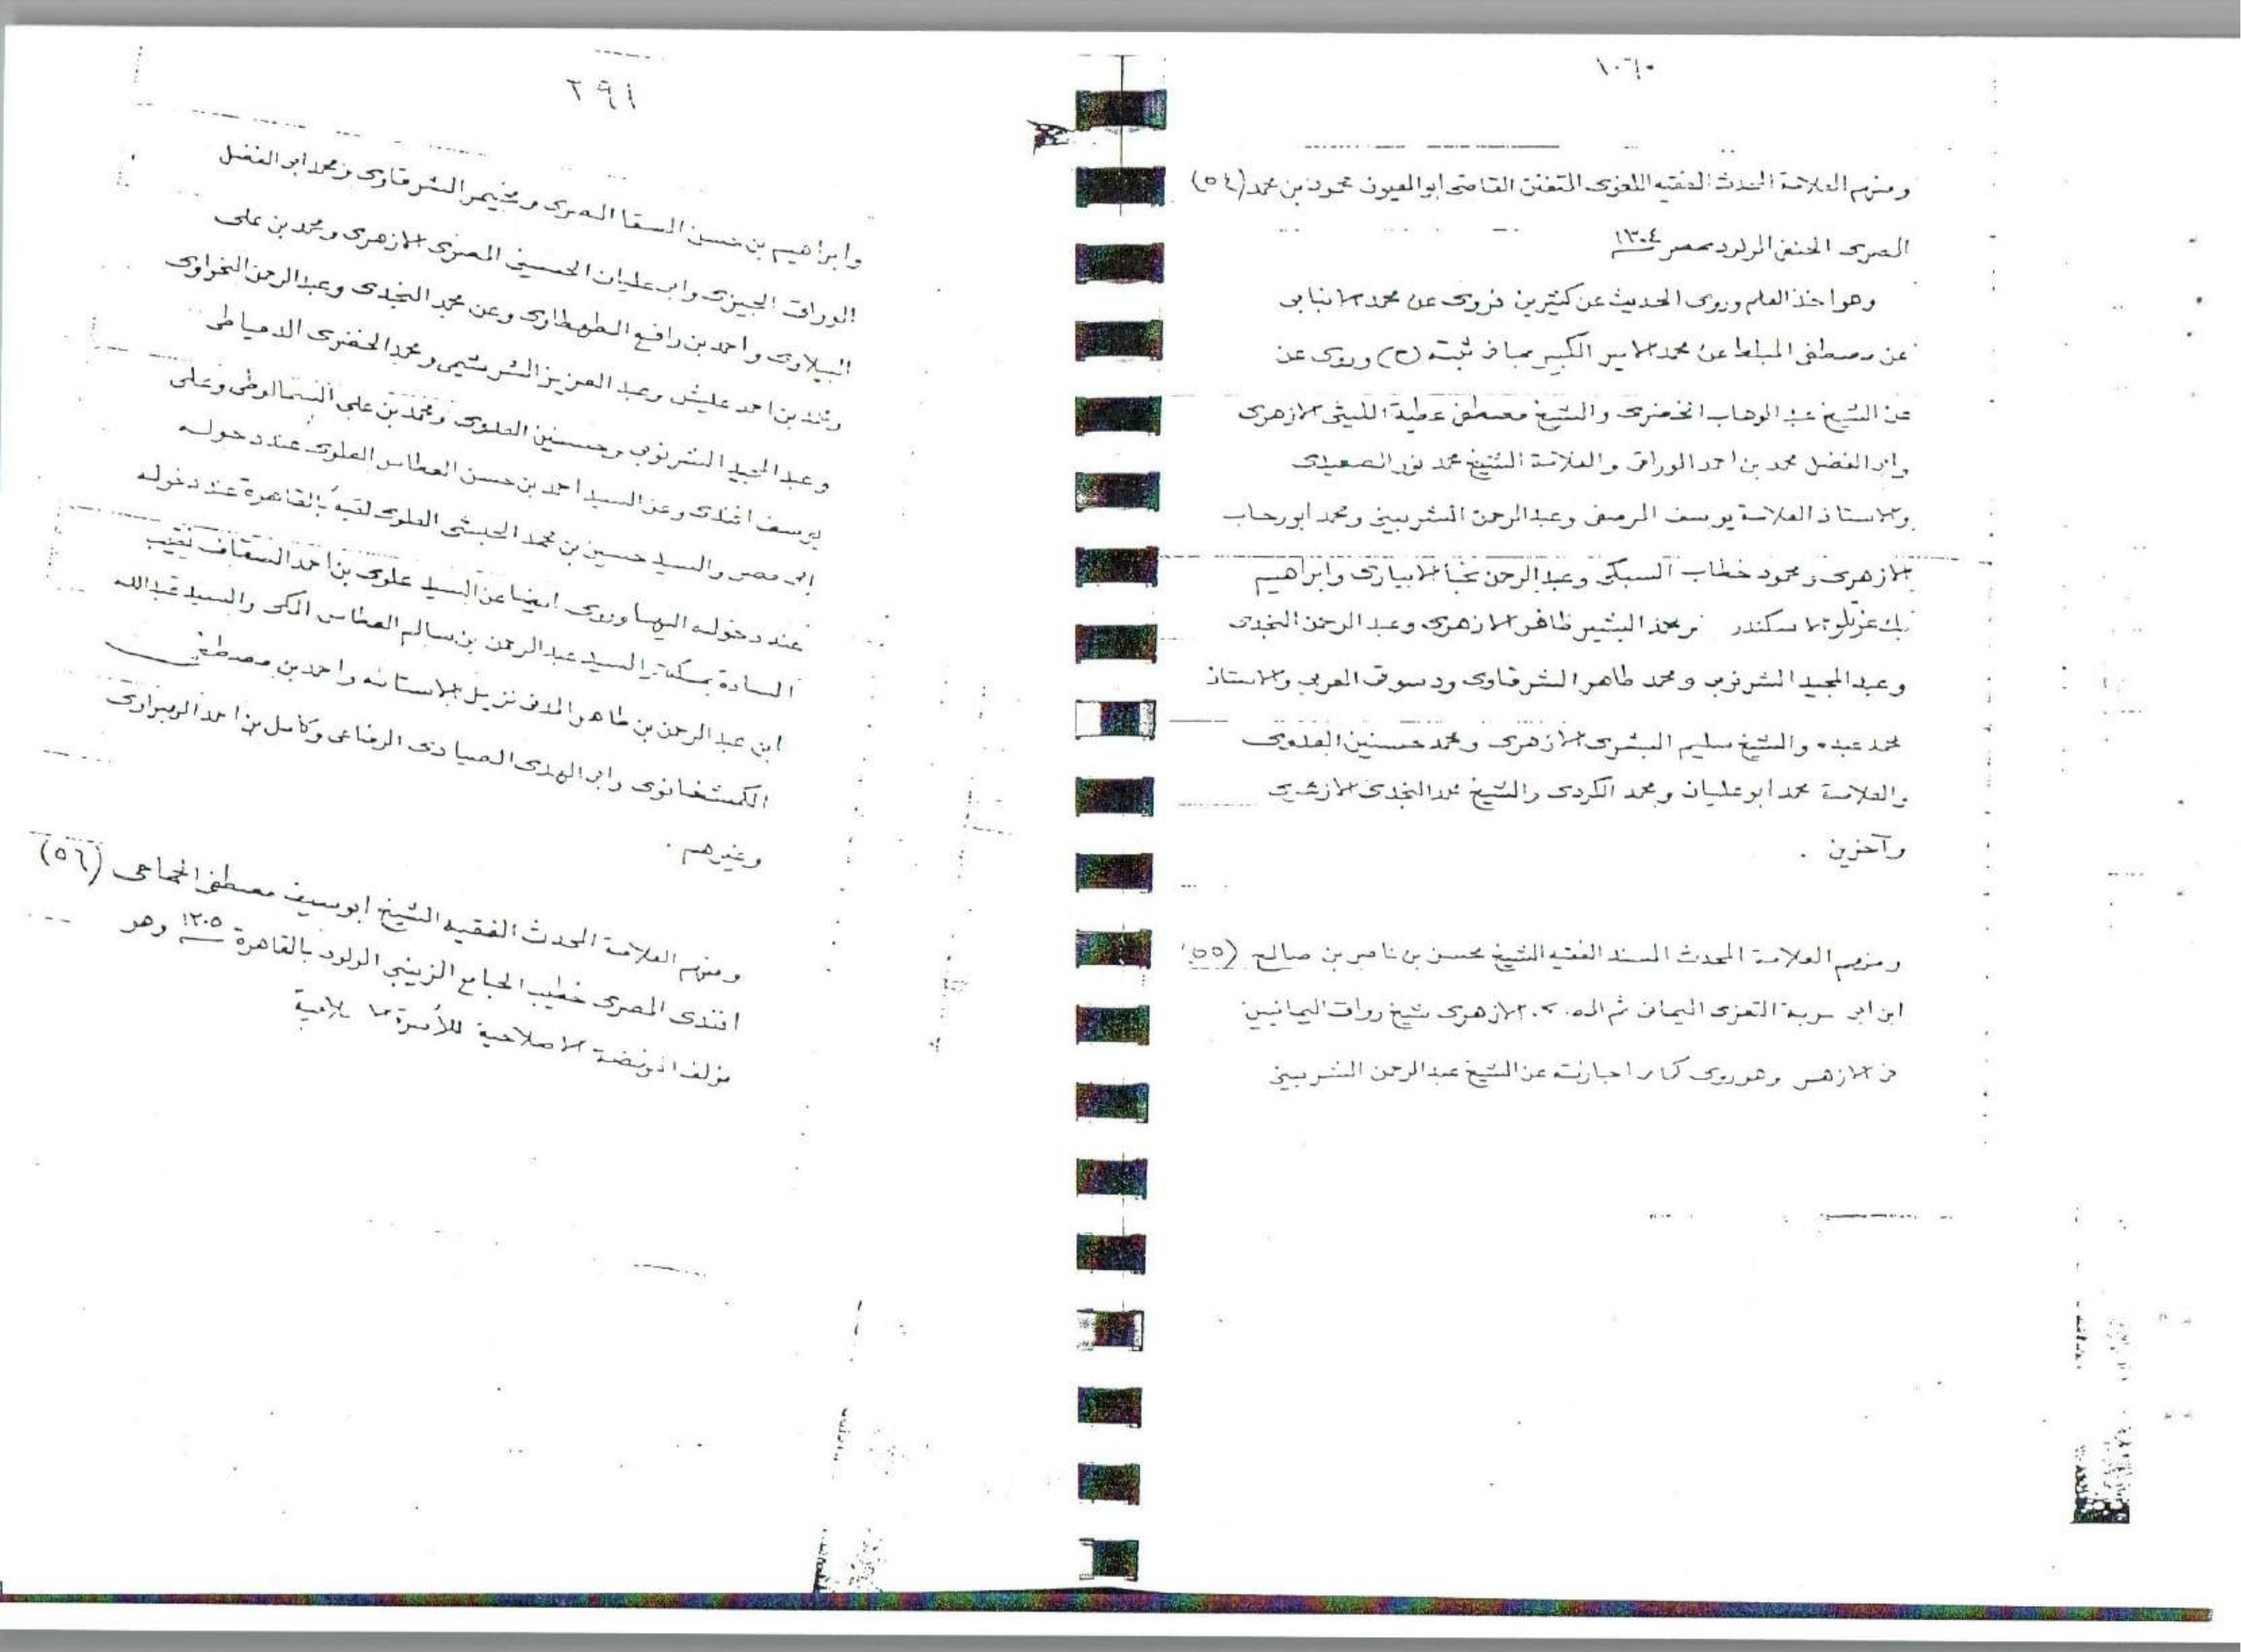 ومنهم العلامة المحدث الفقيه اللغوى المتفنن القاضى ابو العيون محمود بن محمد (٥٤)
المصرى الحنفى المولود بمصر ١٣٠٤
وهو اخذ العلم وروى الحديث عن كثيرين فروى عن محمد الانبابى
عن مصطفى المبلط عن محمد الامير الكبير بما فى ثبته (ح) وروى عن
عن الشيخ عبد الوهاب الخضرى والشيخ مصطفى عطية الليثى الازهرى
وابو الفضل محمد بن احمد الوراق والعلامة الشيخ محمد نور الصعيدى
والاستاذ العلامة يوسف المرصفى وعبد الرحمن الشربينى ومحمد ابو رحاب
الازهرى ومحمود خطاب السبكى وعبد الرحمن نجا الابيارى وابراهيم
بك ومحمد البشير ظافر الازهرى وعبد الرحمن النجدى
وعبد المجيد الشرنوبى ومحمد طاهر الشرقاوى ودسوقى العربى والاستاذ
محمد عبده والشيخ سليم البشرى الازهرى ومحمد حسنين العدوى
والعلامة محمد ابو عليان ومحمد الكردى والشيخ محمد النجدى الازهرى
وآخرين .
ومنهم العلامة المحدث المسند الفقيه الشيخ محسن بن ناصر بن صالح (٥٥)
ابن ابى سربة التعزى اليمانى ثم الازهرى شيخ رواق اليمانيين
فى الازهر وهو روى كما اجازته عن الشيخ عبد الرحمن الشربينى
٢٩١
وابراهيم بن حسن السقا المصرى الشرقاوى ومحمد ابو الفضل
الوراق الجيزى وابى عليان الحسينى المصرى الازهرى ومحمد بن على
الببلاوى واحمد بن رافع الطهطاوى وعن محمد النجدى وعبد الرحمن البحراوى
ومحمد بن احمد عليش وعبد العزيز ومحمد الخضرى الدمياطى
وعبد المجيد الشرنوبى وحسنين العدوى ومحمد بن على السمالوطى وعلى
يوسف افندى وعن السيد احمد بن حسن العطاس العلوى عند دخوله
الى مصر والسيد حسين بن محمد الحبشى العلوى لقيه بالقاهرة عند دخوله
عند دخوله اليها وروى ايضا عن السيد علوى بن احمد السقاف نقيب
السادة بمكة والسيد عبد الرحمن بن سالم العطاس المكى والسيد عبد الله
ابن عبد الرحمن بن طاهر والمدنى نزيل الاستانه واحمد بن مصطفى
الكمشخانوى وابو الهدى الصيادى الرفاعى وكامل بن احمد الهبراوى
وغيرهم .
ومنهم العلامة المحدث الفقيه الشيخ ابو سيف مصطفى الحمامى (٥٦)
افندى المصرى خطيب الجامع الزينبى المولود بالقاهرة ١٣٠٥ وهو
مؤلف النهضة الاصلاحية للأسرة الاسلامية